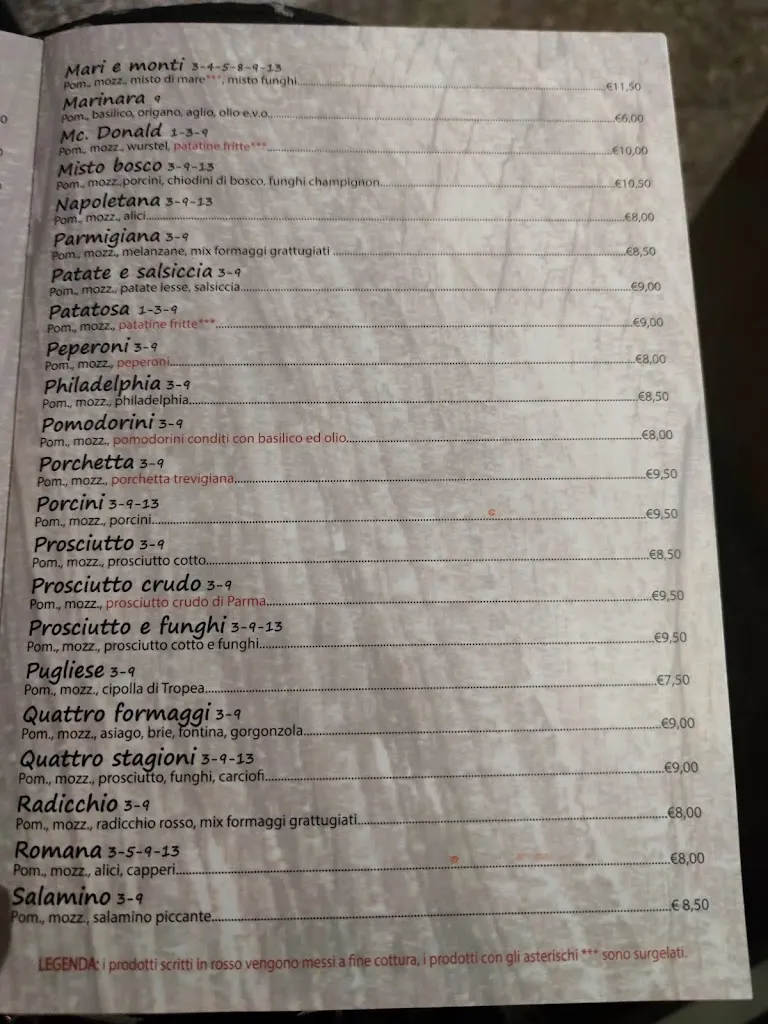 Mari e monti 3-4-5-8-9-13
Pom., mozz., misto di mare***, misto funghi......€11,50
Marinara 9
Pom., basilico, origano, aglio, olio e.v.o......€6,00
Mc. Donald 1-3-9
Pom., mozz., wurstel, patatine fritte***......€10,00
Misto bosco 3-9-13
Pom., mozz.,porcini, chiodini di bosco, funghi champignon......€10,50
Napoletana 3-9-13
Pom., mozz., alici......€8,00
Parmigiana 3-9
Pom., mozz., melanzane, mix formaggi grattugiati ......€8,50
Patate e salsiccia 3-9
Pom., mozz., patate lesse, salsiccia......€9,00
Patatosa 1-3-9
Pom., mozz., patatine fritte***......€9,00
Peperoni 3-9
Pom., mozz., peperoni......€8,00
Philadelphia 3-9
Pom., mozz., philadelphia......€8,50
Pomodorini 3-9
Pom., mozz., pomodorini conditi con basilico ed olio......€8,00
Porchetta 3-9
Pom., mozz., porchetta trevigiana......€9,50
Porcini 3-9-13
Pom., mozz., porcini......€9,50
Prosciutto 3-9
Pom., mozz., prosciutto cotto......€8,50
Prosciutto crudo 3-9
Pom., mozz., prosciutto crudo di Parma......€9,50
Prosciutto e funghi 3-9-13
Pom., mozz., prosciutto cotto e funghi......€9,50
Pugliese 3-9
Pom., mozz., cipolla di Tropea......€7,50
Quattro formaggi 3-9
Pom., mozz., asiago, brie, fontina, gorgonzola......€9,00
Quattro stagioni 3-9-13
Pom., mozz., prosciutto, funghi, carciofi......€9,00
Radicchio 3-9
Pom., mozz., radicchio rosso, mix formaggi grattugiati......€8,00
Romana 3-5-9-13
Pom., mozz., alici, capperi......€8,00
Salamino 3-9
Pom., mozz., salamino piccante......€ 8,50
LEGENDA: i prodotti scritti in rosso vengono messi a fine cottura, i prodotti con gli asterischi *** sono surgelati.